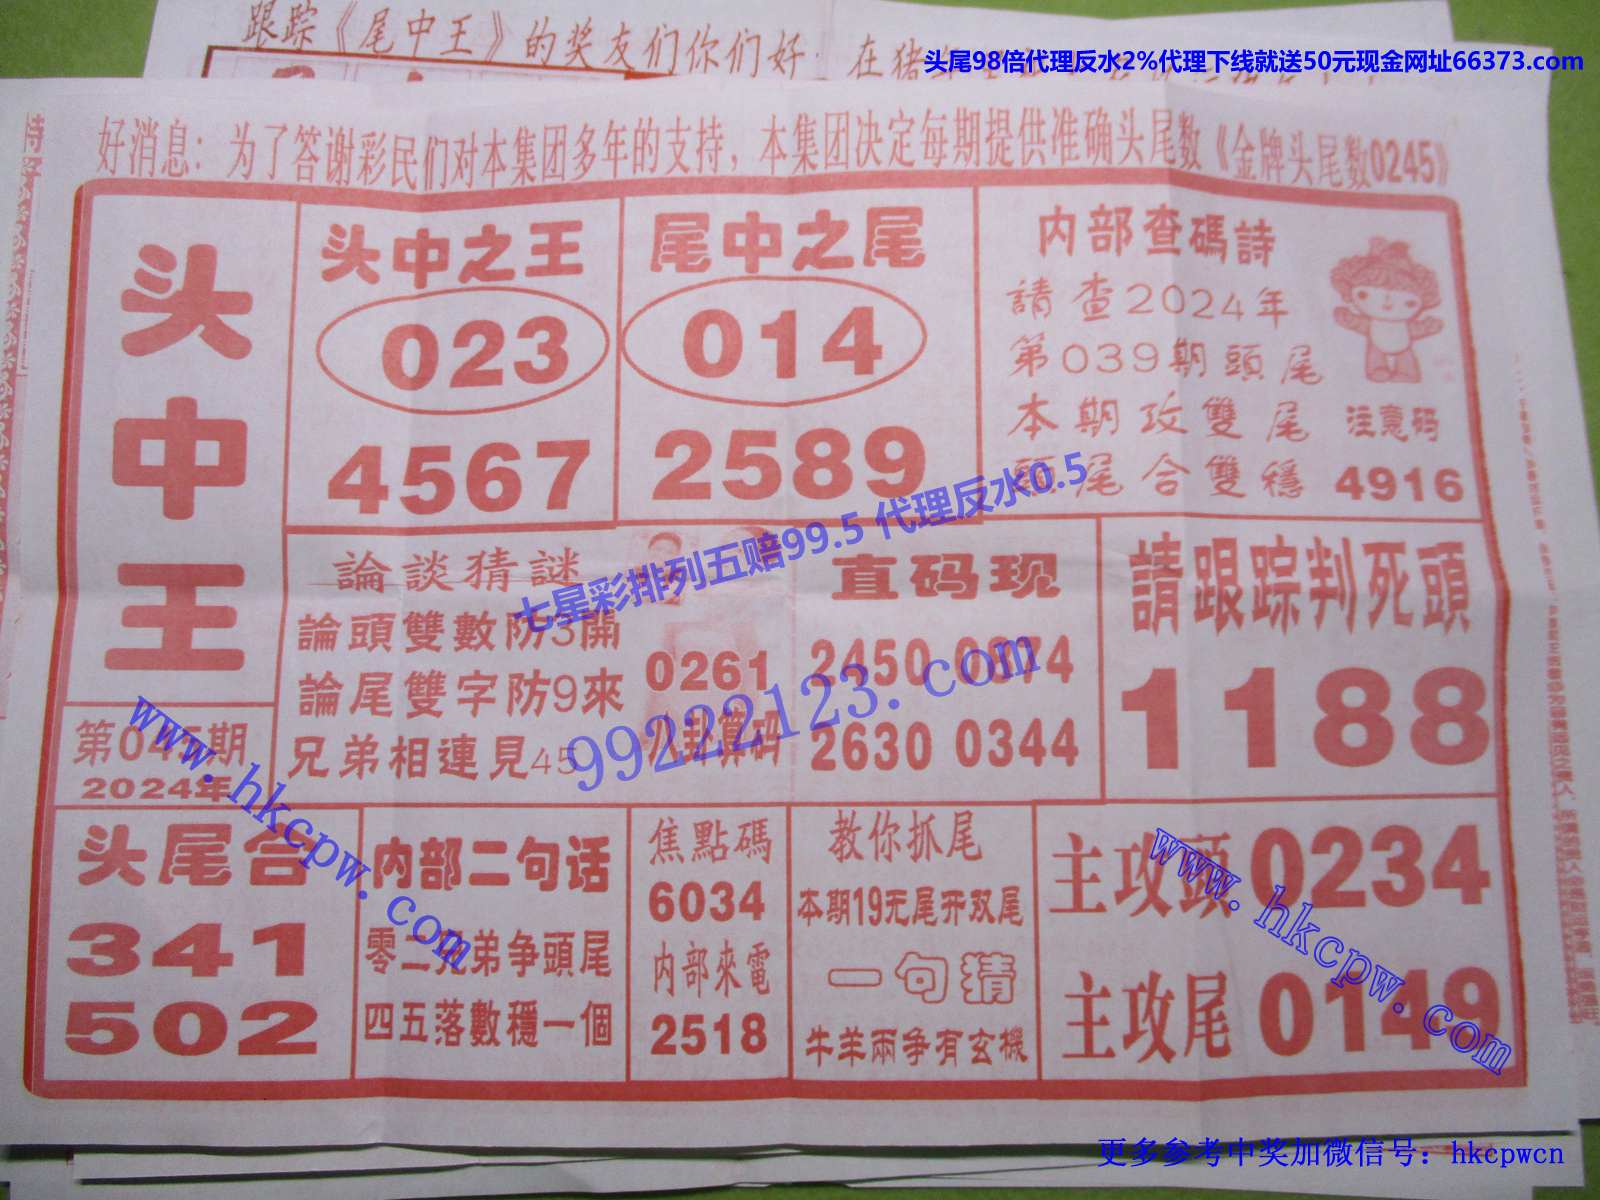 跟踪《尾中王》的奖友们你们好：在猪
头尾98倍代理反水2%代理下线就送50元现金网址66373.com
好消息：为了答谢彩民们对本集团多年的支持，本集团决定每期提供准确头尾数《金牌头尾数0245》
头中王
第04期
2024年
头中之王
023
4567
尾中之尾
014
2589
内部查碼詩
請查2024年
第039期頭尾
本期攻雙尾
頭尾合雙穩
注意码
4916
論談猜謎
論頭雙數防3開
論尾雙字防9來
兄弟相連見45
0261
八卦算码
直码现
2450 0874
2630 0344
請跟踪判死頭
1188
七星彩排列五赔99.5 代理反水0.5
99222123.com
www.hkcpw.com
头尾合
341
502
内部二句话
零二兄弟争頭尾
四五落數穩一個
焦點碼
6034
内部來電
2518
教你抓尾
本期19元尾开双尾
一句猜
牛羊兩争有玄機
主攻頭0234
主攻尾0149
www.hkcpw.com
更多参考中奖加微信号：hkcpwcn